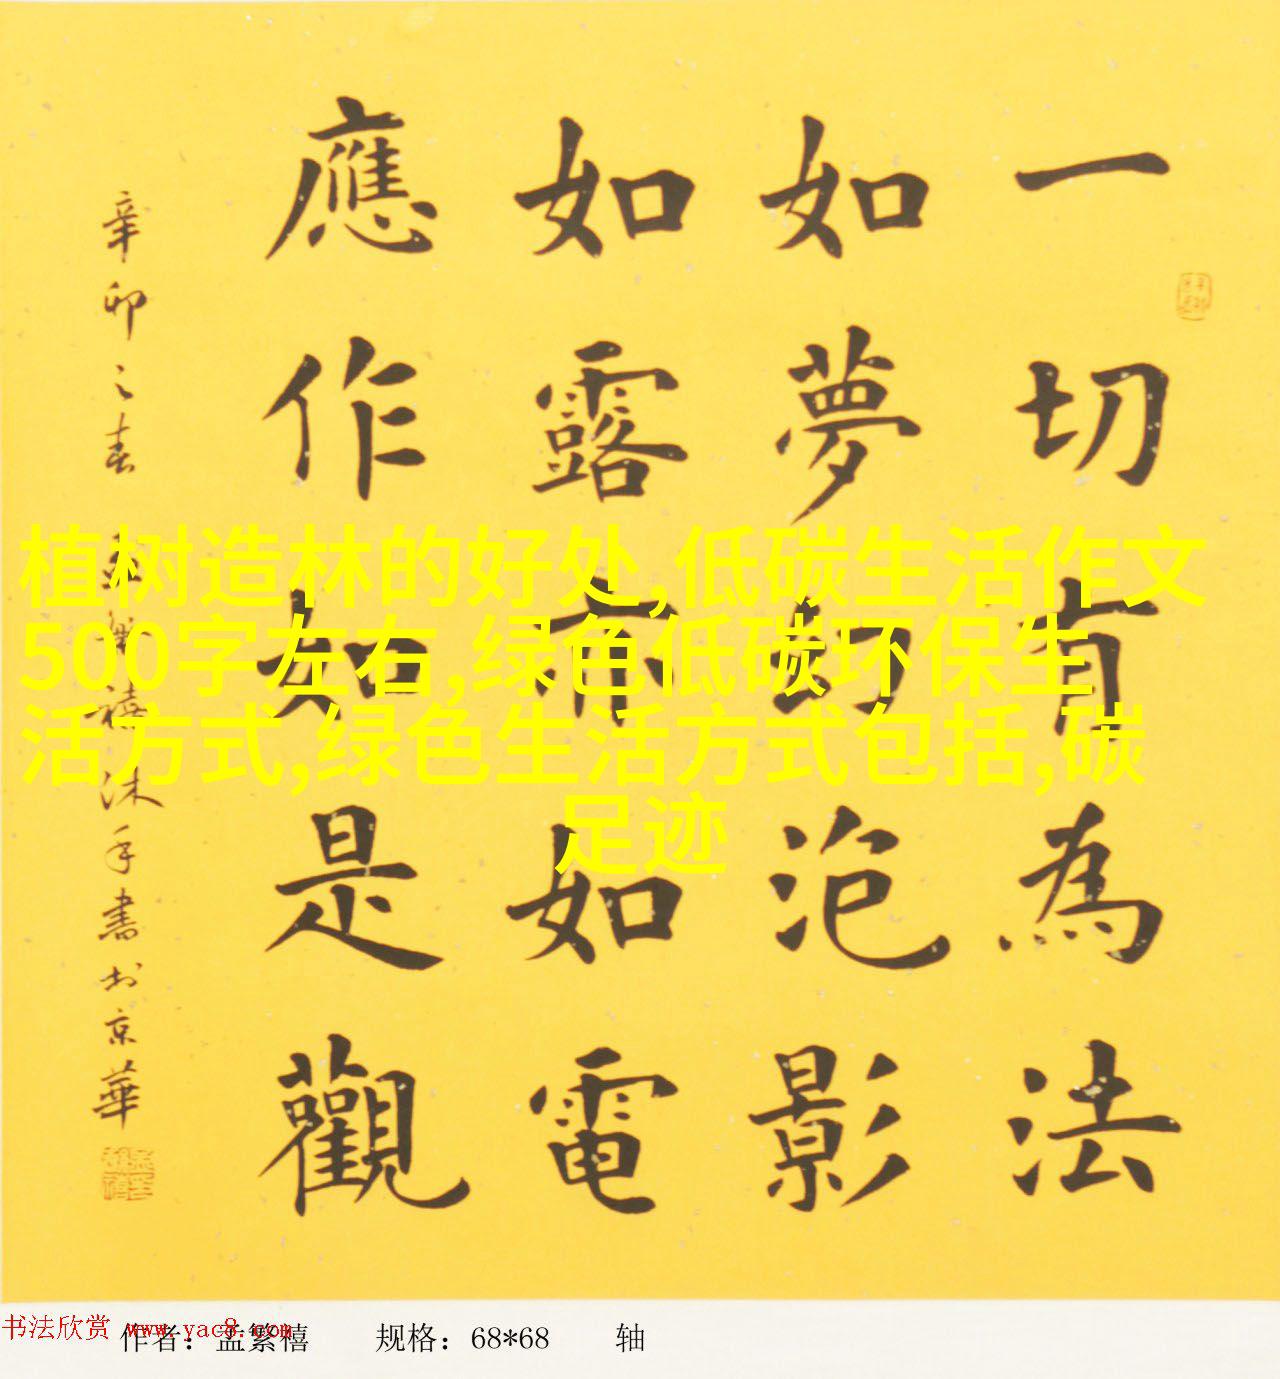 一切有為法
如夢幻泡影
如露亦如電
應作如是觀
辛卯之春 孟繁禧沐手書於京華
植树造林的好处,低碳生活作文
500字左右,绿色低碳环保生
活方式,绿色生活方式包括,碳
足迹
书法欣赏 www.yac8.com
作者：孟繁禧 规格：68*68 轴